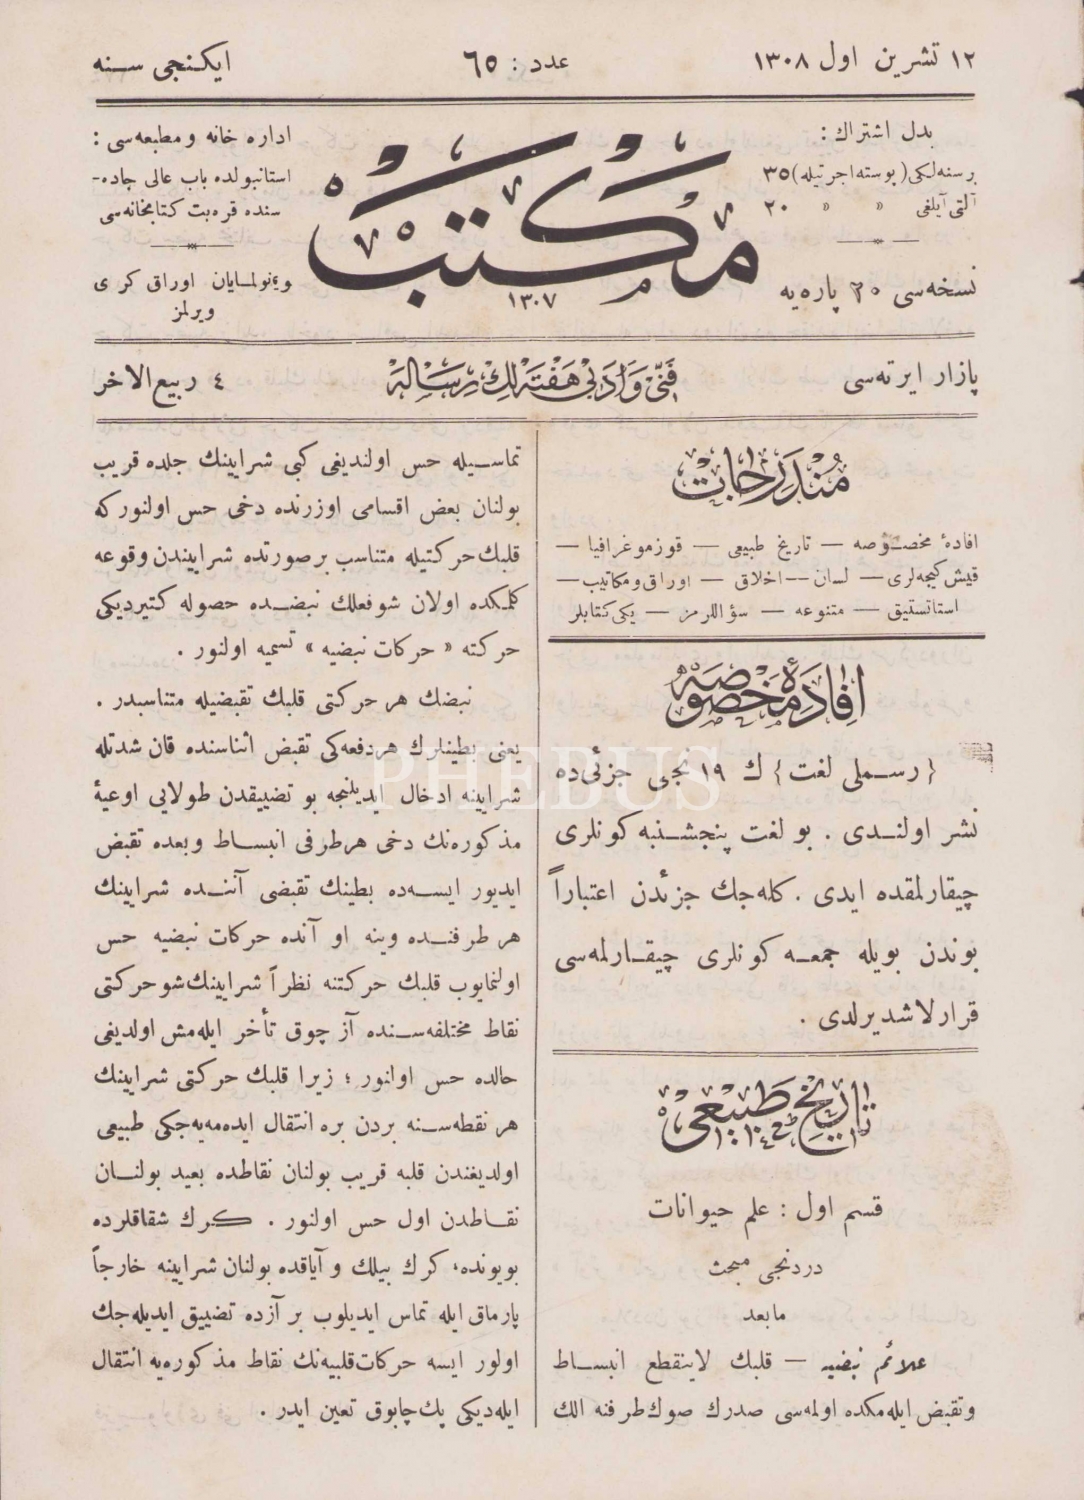 ١٢ تشرين اول ١٣٠٨
عدد : ٦٥
ايكنجی سنه
بدل اشتراك :
برسنه‌لكی (پوسته اجرتيله) ٣٥
آلتی آيلغی » » ٢٠
نسخه‌سی ٢٠ پاره‌يه
مكتب
١٣٠٧
اداره خانه ومطبعه‌سی :
استانبولده باب عالی جاده‌-
سنده قره‌بت كتابخانه‌سی
اوراق كری
ويرلمز
پازار ايرته‌سی
فنی وادبی هفته‌لك رساله
٤ ربيع الاخر
مندرجات
افادهٔ مخصوصه — تاريخ طبيعی — قوزموغرافيا —
قيش كيجه‌لری — لسان — اخلاق — اوراق ومكاتيب —
استاتستيق — متنوعه — سؤاللرمز — يكی كتابلر
افادهٔ مخصوصه
{ رسملی لغت } ك ١٩ نجی جزئی‌ده
نشر اولندی . بو لغت پنجشنبه كونلری
چيقارلمقده ايدی . كله‌جك جزئدن اعتباراً
بوندن بويله جمعه كونلری چيقارلمه‌سی
قرارلاشديرلدی .
تاريخ طبيعی
قسم اول : علم حيوانات
دردنجی مبحث
مابعد
علائم نبضيه — قلبك لاينقطع انبساط
وتقبض ايله‌مكده اولمه‌سی صدرك صوك طرفنه الك
تماسيله حس اولنديغی كبی شرايينك جلده قريب
بولنان بعض اقسامی اوزرنده دخی حس اولنوركه
قلبك حركتيله متناسب برصورتده شرايیندن وقوعه
كلمكده اولان شو فعلك نبضده حصوله كتيرديكی
حركته « حركات نبضيه » تسميه اولنور .
نبضك هر حركتی قلبك تقبضيله متناسبدر .
يعنی بطينلرك هردفعه‌كی تقبض اثناسنده قان شدتله
شرايينه ادخال ايديلنجه بو تضييقدن طولايی اوعيهٔ
مذكوره‌نك دخی هرطرفی انبساط وبعده تقبض
ايديور ايسه‌ده بطينك تقبضی آننده شرايينك
هر طرفنده وينه او آنده حركات نبضيه حس
اولنمايوب قلبك حركتنه نظراً شرايينك شو حركتی
نقاط مختلفه‌سنده آز چوق تأخر ايله‌مش اولديغی
حالده حس اولنور ؛ زيرا قلبك حركتی شرايينك
هر نقطه‌سنه بردن بره انتقال ايده‌مه‌يه‌جكی طبيعی
اولديغندن قلبه قريب بولنان نقاطده بعيد بولنان
نقاطدن اول حس اولنور . كرك شقاقلرده
بويونده، كرك بيلك و آياقده بولنان شرايينه خارجاً
پارماق ايله تماس ايديلوب بر آزده تضييق ايديله‌جك
اولور ايسه حركات قلبيه‌نك نقاط مذكوره‌يه انتقال
ايله‌ديكی پك چابوق تعين ايدر .
PHEBUS